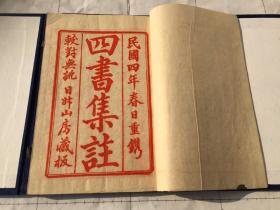 民國四年春日重鐫
四書集註
較對無訛 日昇山房藏板